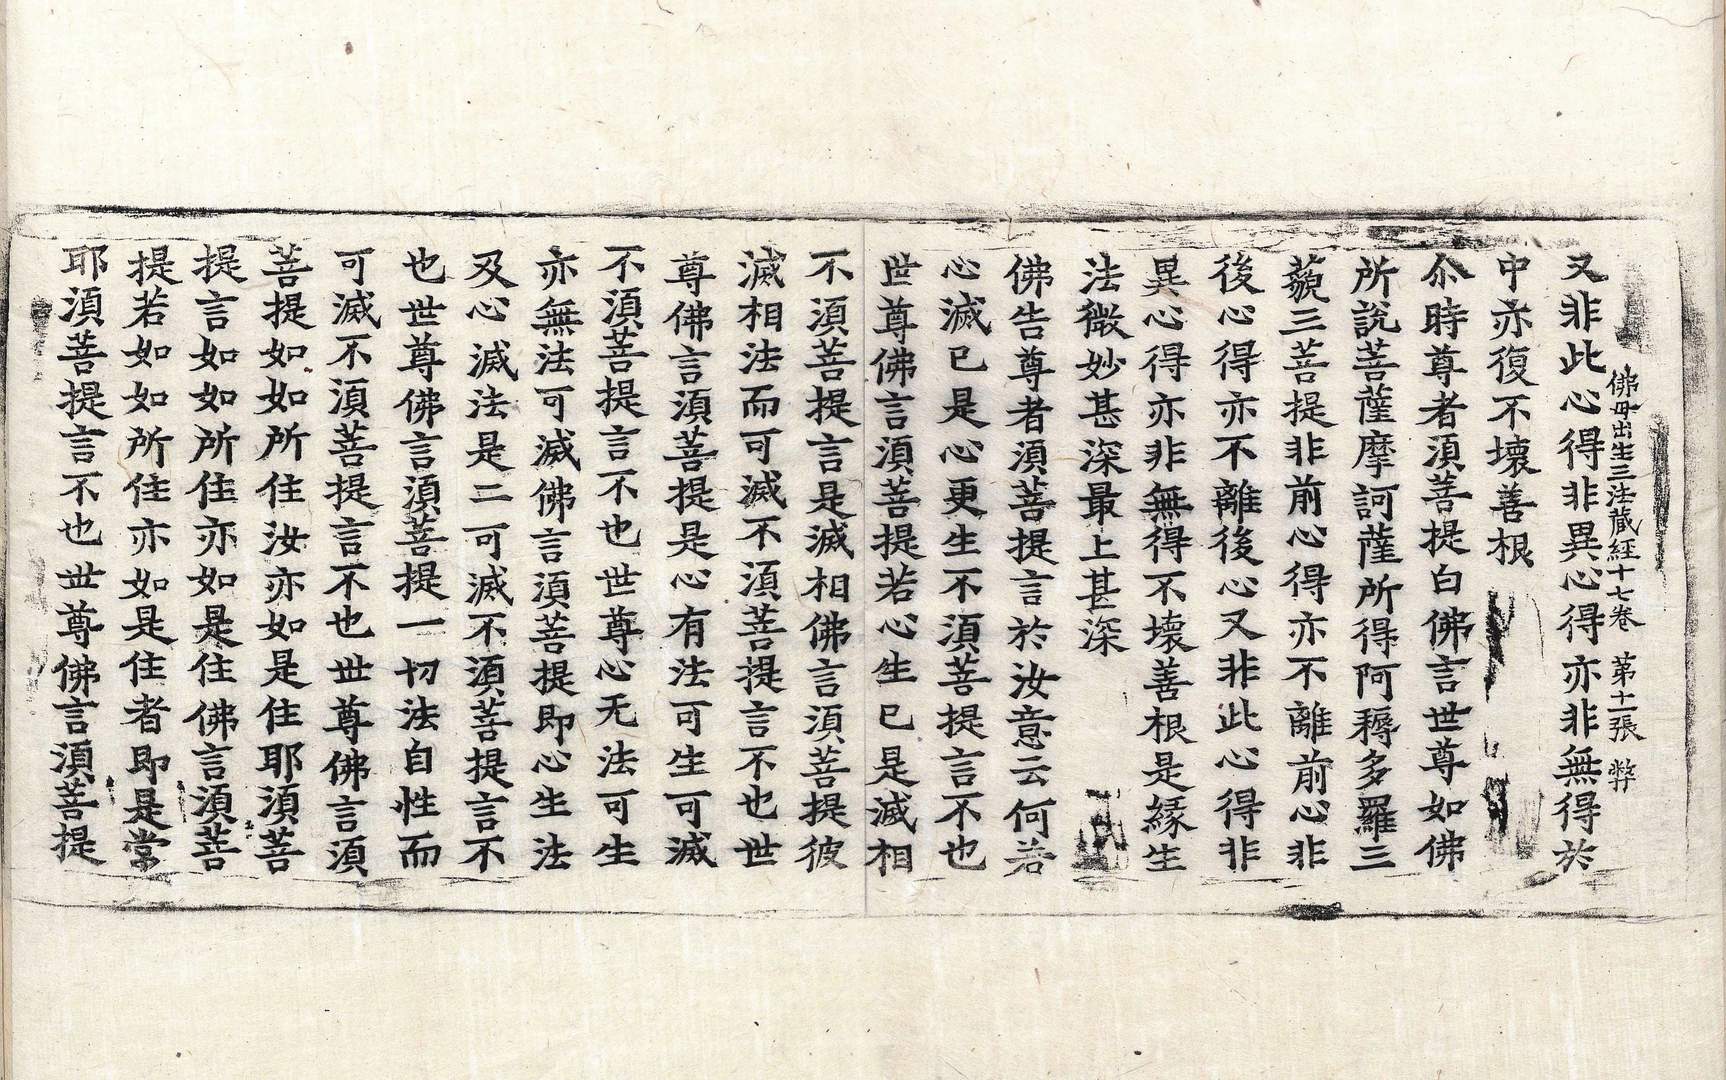 佛母出生三法藏經十七卷 第十一張 弊
又非此心得非異心得亦非無得於
中亦復不壞善根
尒時尊者須菩提白佛言世尊如佛
所說菩薩摩訶薩所得阿耨多羅三
藐三菩提非前心得亦不離前心非
後心得亦不離後心又非此心得非
異心得亦非無得不壞善根是緣生
法微妙甚深最上甚深
佛告尊者須菩提言於汝意云何若
心滅已是心更生不須菩提言不也
世尊佛言須菩提若心生已是滅相
不須菩提言是滅相佛言須菩提彼
滅相法而可滅不須菩提言不也世
尊佛言須菩提是心有法可生可滅
不須菩提言不也世尊心无法可生
亦無法可滅佛言須菩提即心生法
及心滅法是二可滅不須菩提言不
也世尊佛言須菩提一切法自性而
可滅不須菩提言不也世尊佛言須
菩提如如所住汝亦如是住耶須菩
提言如如所住亦如是住佛言須菩
提若如如所住亦如是住者即是常
耶須菩提言不也世尊佛言須菩提